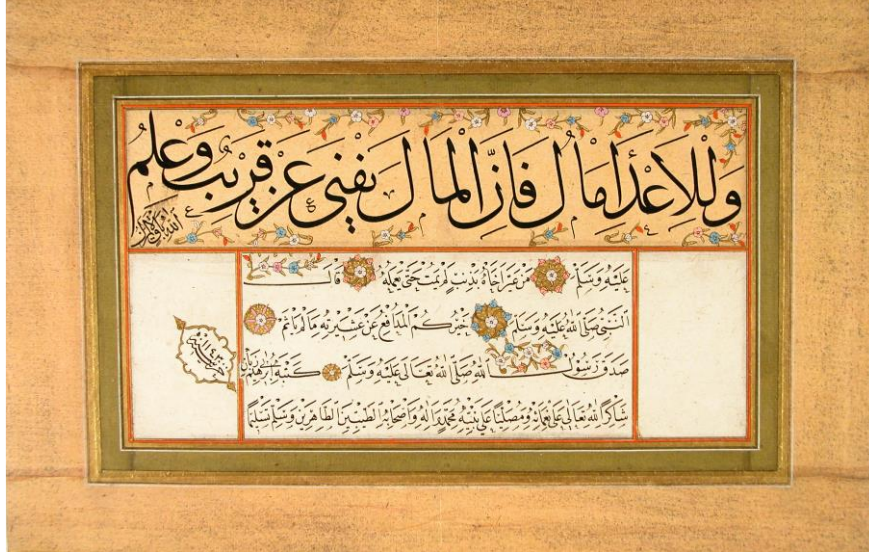 وَلِلاَعْدَا مَالٌ فَاِنَّ الْمَالَ يَفْنَى عَنْ قَرِيبٍ وَعِلْمُ
اللّٰه باق لا يزال
عَلَيْهِ وَسَلَّمْ مَنْ عَيَّرَ اَخَاهُ بِذَنْبٍ لَمْ يَمُتْ حَتَّى يَعْمَلَهُ قَالَ
النَّبِيُّ صَلَّى اللّٰهُ عَلَيْهِ وَسَلَّمْ خَيْرُكُمُ الْمُدَافِعُ عَنْ عَشِيرَتِهِ مَا لَمْ يَأْثَمْ
صَدَقَ رَسُولُ اللّٰهِ صَلَّى اللّٰهُ تَعَالَى عَلَيْهِ وَسَلَّمْ كَتَبَهُ
شَاكِرًا لِلّٰهِ تَعَالَى عَلَى نَعْمَائِهِ وَمُصَلِّيًا عَلَى نَبِيِّهِ مُحَمَّدٍ وَاٰلِهِ وَاَصْحَابِهِ الطَّيِّبِينَ الطَّاهِرِينَ وَسَلَّمَ تَسْلِيمًا